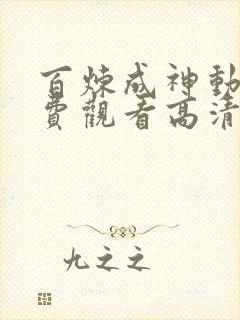 百煉成神動
費觀看高清
九之之